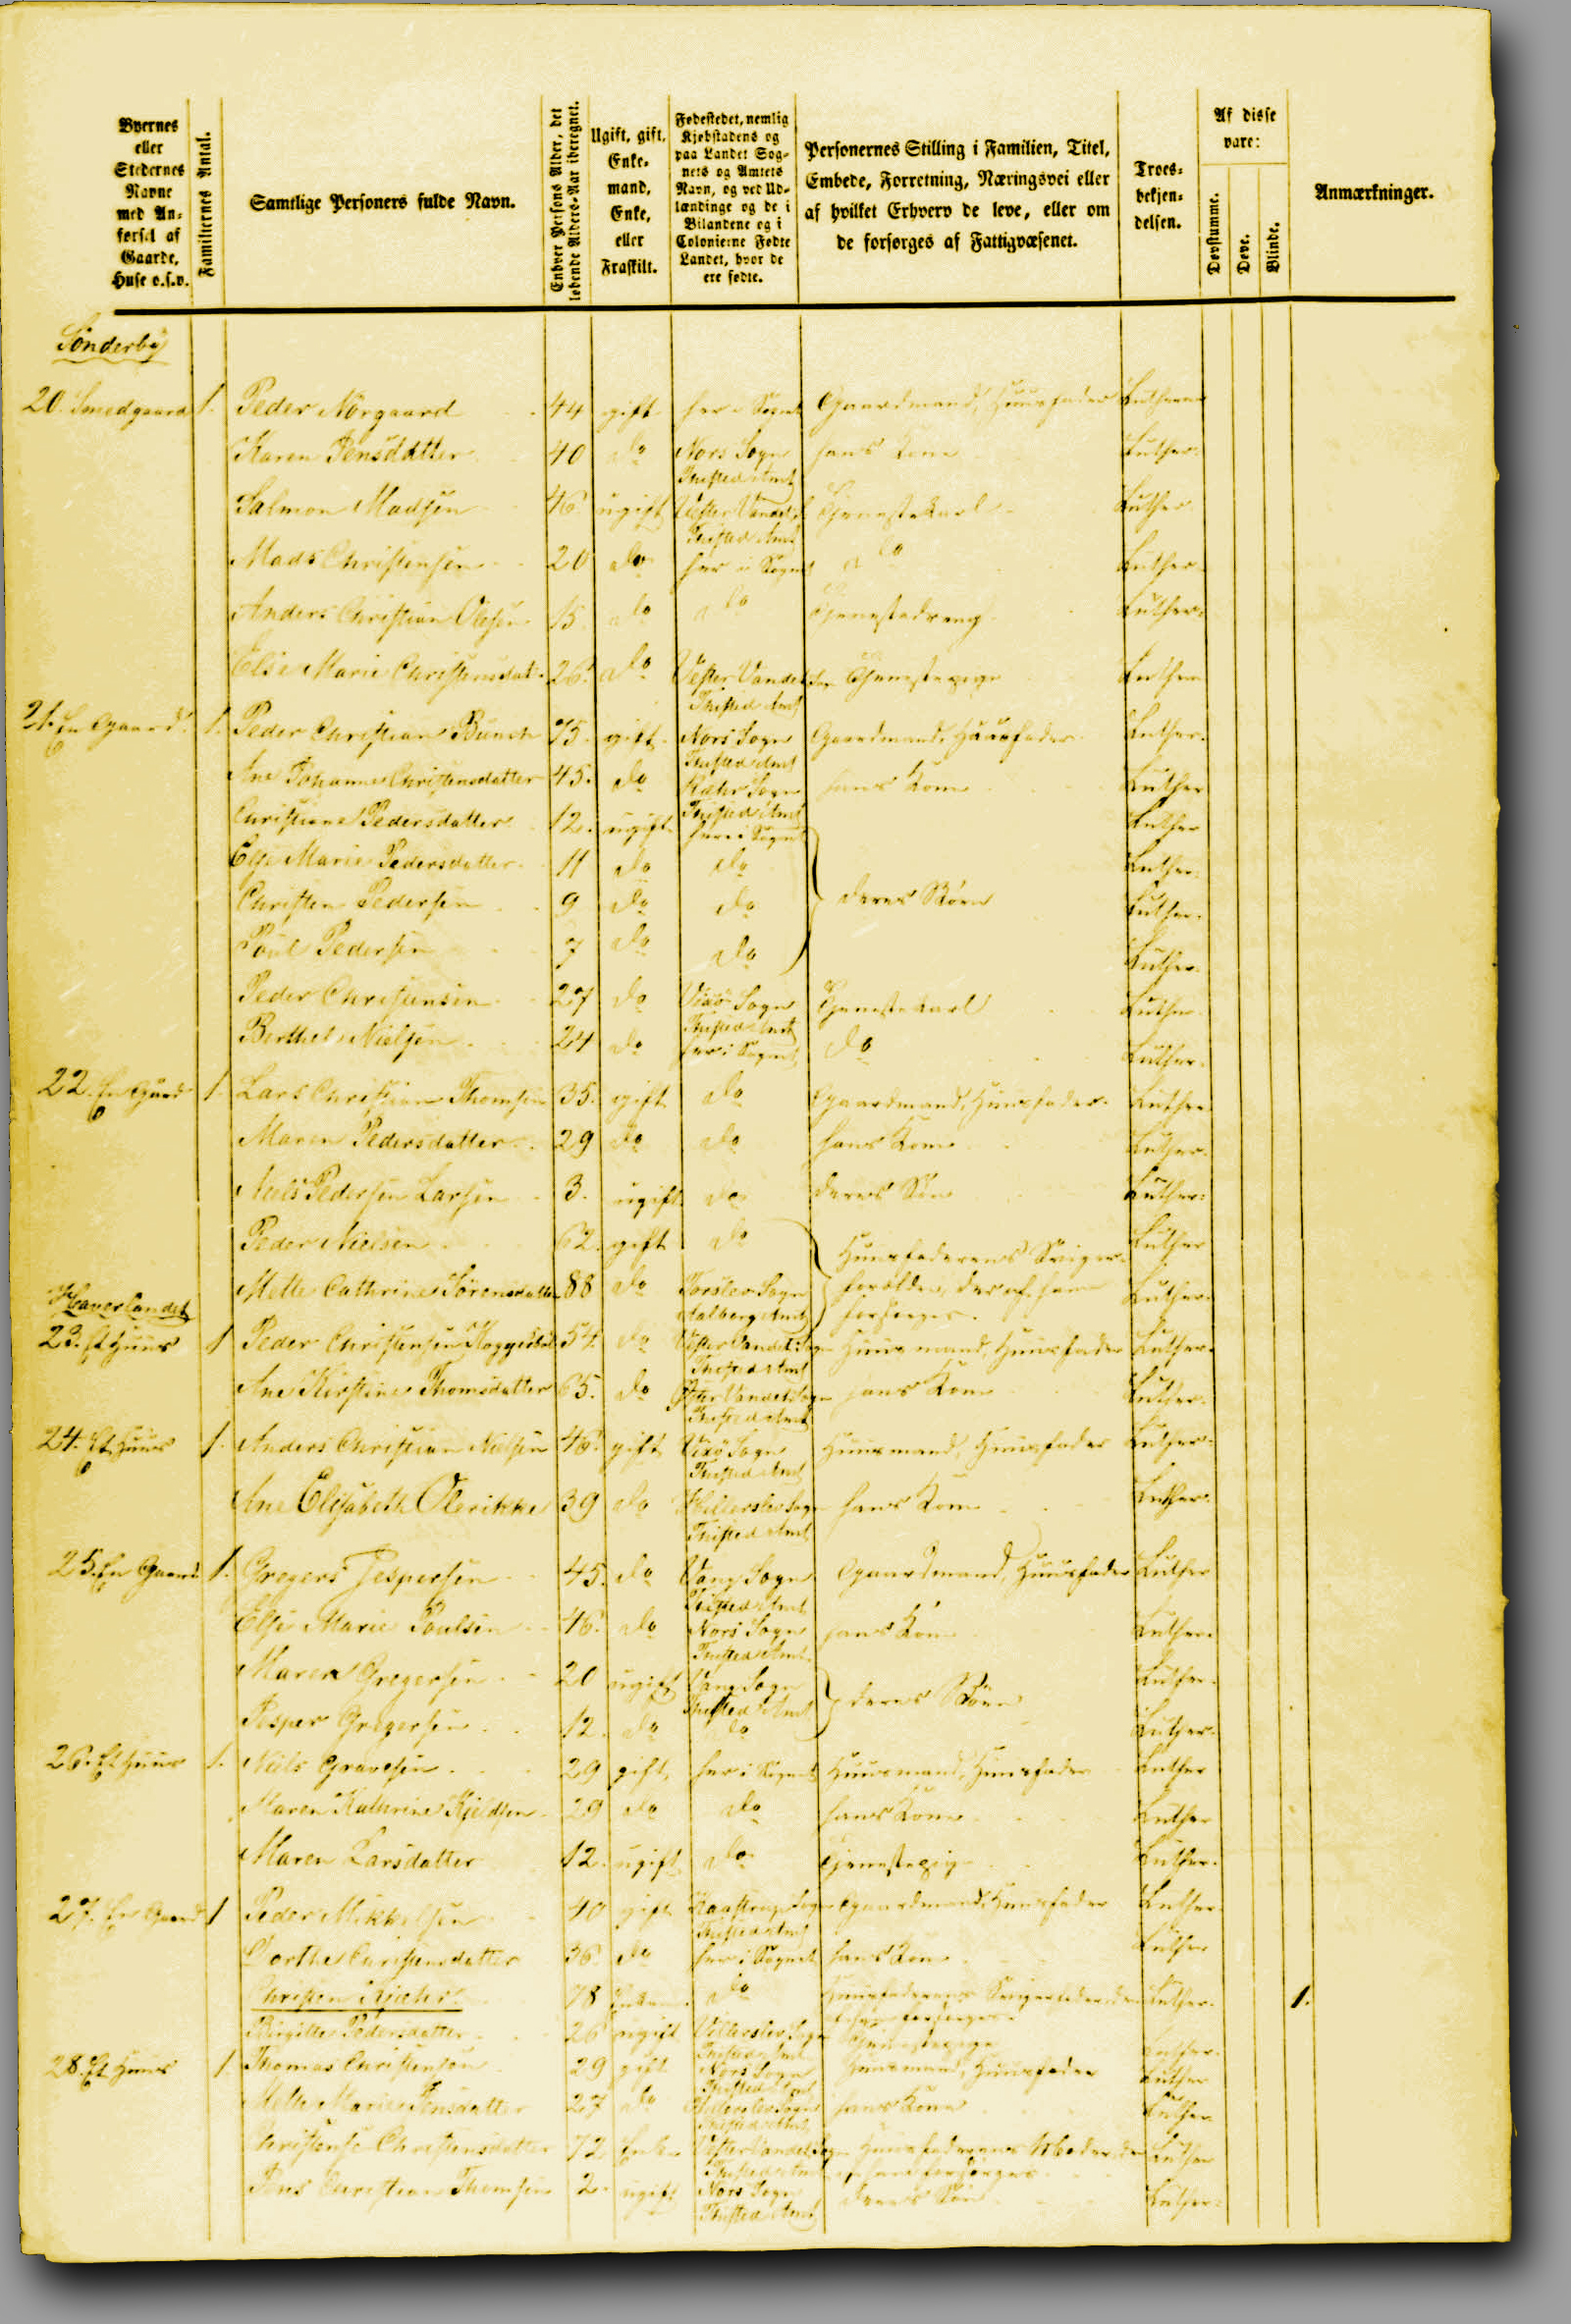 Byernes eller Stedernes Navne med Anførsel af Gaarde, Huse o.s.v.
Familiernes Antal.
Samtlige Personers fulde Navn.
Enhver Persons Alder, det løbende Alders-Aar iberegnet.
Ugift, gift, Enkemand, Enke, eller Fraskilt.
Fødestedet, nemlig Kjøbstadens og paa Landet Sognets og Amtets Navn, og ved Udlændinge og de i Bilandene og i Colonierne Fødte Landet, hvor de ere fødte.
Personernes Stilling i Familien, Titel, Embede, Forretning, Næringsvei eller af hvilket Erhverv de leve, eller om de forsørges af Fattigvæsenet.
Troesbekjendelsen.
Af disse vare:
Døvstumme.
Døve.
Blinde.
Anmærkninger.
Sönderby
20. Smedgaard 1. Peder Nörgaard 44 gift her i Sognet Gaardmand, Huusfader Luthersk
Karen Jensdatter 40 do Nors Sogn Thisted Amt hans Kone Luther.
Salmon Madsen 46 ugift Vester Vandet Thisted Amt Tjenestekarl Luther.
Mads Christensen 20 do her i Sognet do Luther.
Anders Christian Olesen 15 do do Tjenestedreng Luther.
Else Marie Christensdat. 26 do Vester Vandet Sogn Thisted Amt Tjenestepige Luther.
21. En Gaard 1. Peder Christian Bunch 75 gift Nors Sogn Thisted Amt Gaardmand, Huusfader Luther.
Ane Johanne Christensdatter 45. do Ræhr Sogn Thisted Amt hans Kone Luther
Christiane Pedersdatter 12. ugift her i Sognet Luther
Else Marie Pedersdatter 11 do do Luther.
Christen Pedersen 9 do do deres Börn Luther.
Poul Pedersen 7 do do Luther.
Peder Christensen 27 do Vixö Sogn Thisted Amt Tjenestekarl Luther.
Berthel Nielsen 24 do her i Sognet do Luther.
22. En Gaard 1. Lars Christian Thomsen 35. gift do Gaardmand, Huusfader Luther.
Maren Pedersdatter 29 do do hans Kone Luther.
Niels Pedersen Larsen 3. ugift do deres Sön Luther.
Peder Nielsen 62. gift do Huusfaderens Sviger- Luther
Mette Cathrine Sörensdatter 88 do Torslev Sogn Aalborg Amt forældre, der af ham forsörges. Luther.
Haverlandet
23. Et Huus 1 Peder Christensen 54 do Vester Vandet Sogn Thisted Amt Huusmand, Huusfader Luther.
Ane Kirstine Thomsdatter 65. do Öster Vandet Sogn Thisted Amt hans Kone Luther.
24. Et Huus 1. Anders Christian Nielsen 46. gift Vixö Sogn Thisted Amt Huusmand, Huusfader Luther.
Ane Elisabeth Olerikke 39 do Hillerslev Sogn Thisted Amt hans Kone Luther.
25. En Gaard 1. Gregers Jespersen 45. do Vang Sogn Thisted Amt Gaardmand, Huusfader Luther
Else Marie Poulsen 46. do Nors Sogn Thisted Amt hans Kone Luther.
Maren Gregersen 20 ugift Vang Sogn Thisted Amt deres Börn Luther.
Jesper Gregersen 12. do do Luther.
26. Et Huus 1. Niels Gravesen 29 gift her i Sognet Huusmand, Huusfader Luther
Maren Kathrine Kjeldsen 29 do do hans Kone Luther
Maren Larsdatter 12. ugift do Tjenestepige Luther.
27. En Gaard 1 Peder Mikkelsen 40 gift Kaastrup Sogn Thisted Amt Gaardmand, Huusfader Luther.
Dorthe Christensdatter 36 do her i Sognet hans Kone Luther
Christen 78 Enkem. do Huusfaderens Luther. 1.
Birgitte Pedersdatter 26 ugift Thisted Amt Tjenestepige Luther.
28. Et Huus 1. Thomas Christensen 29 gift Nors Sogn Thisted Amt Huusmand, Huusfader Luther
Mette Marie Jensdatter 27 do Hillerslev Sogn Thisted Amt hans Kone Luther.
Christense Christensdatter 72 Enke Vester Vandet Sogn Thisted Amt Huusfaderens Moder, der af ham forsörges. Luther
Jens Christian Thomsen 2. ugift Nors Sogn Thisted Amt deres Sön Luther.